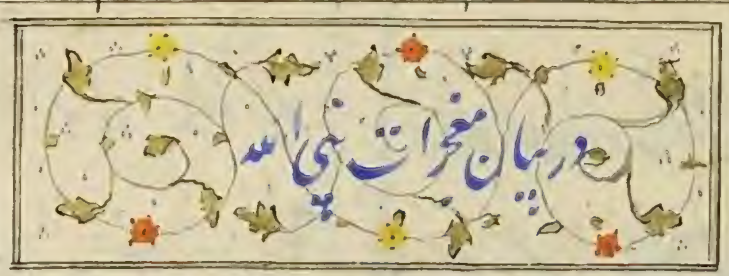 در بیان معجزات نبی الله